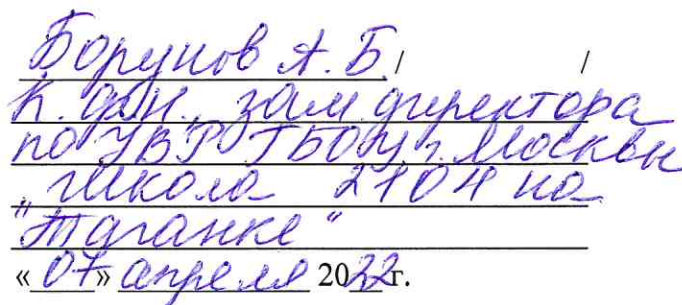 Борунов А.Б. / /
к.фн., зам. директора
по УВР ГБОУ г. Москвы
"Школа 2104 на
Таганке"
«07» апреля 2022 г.